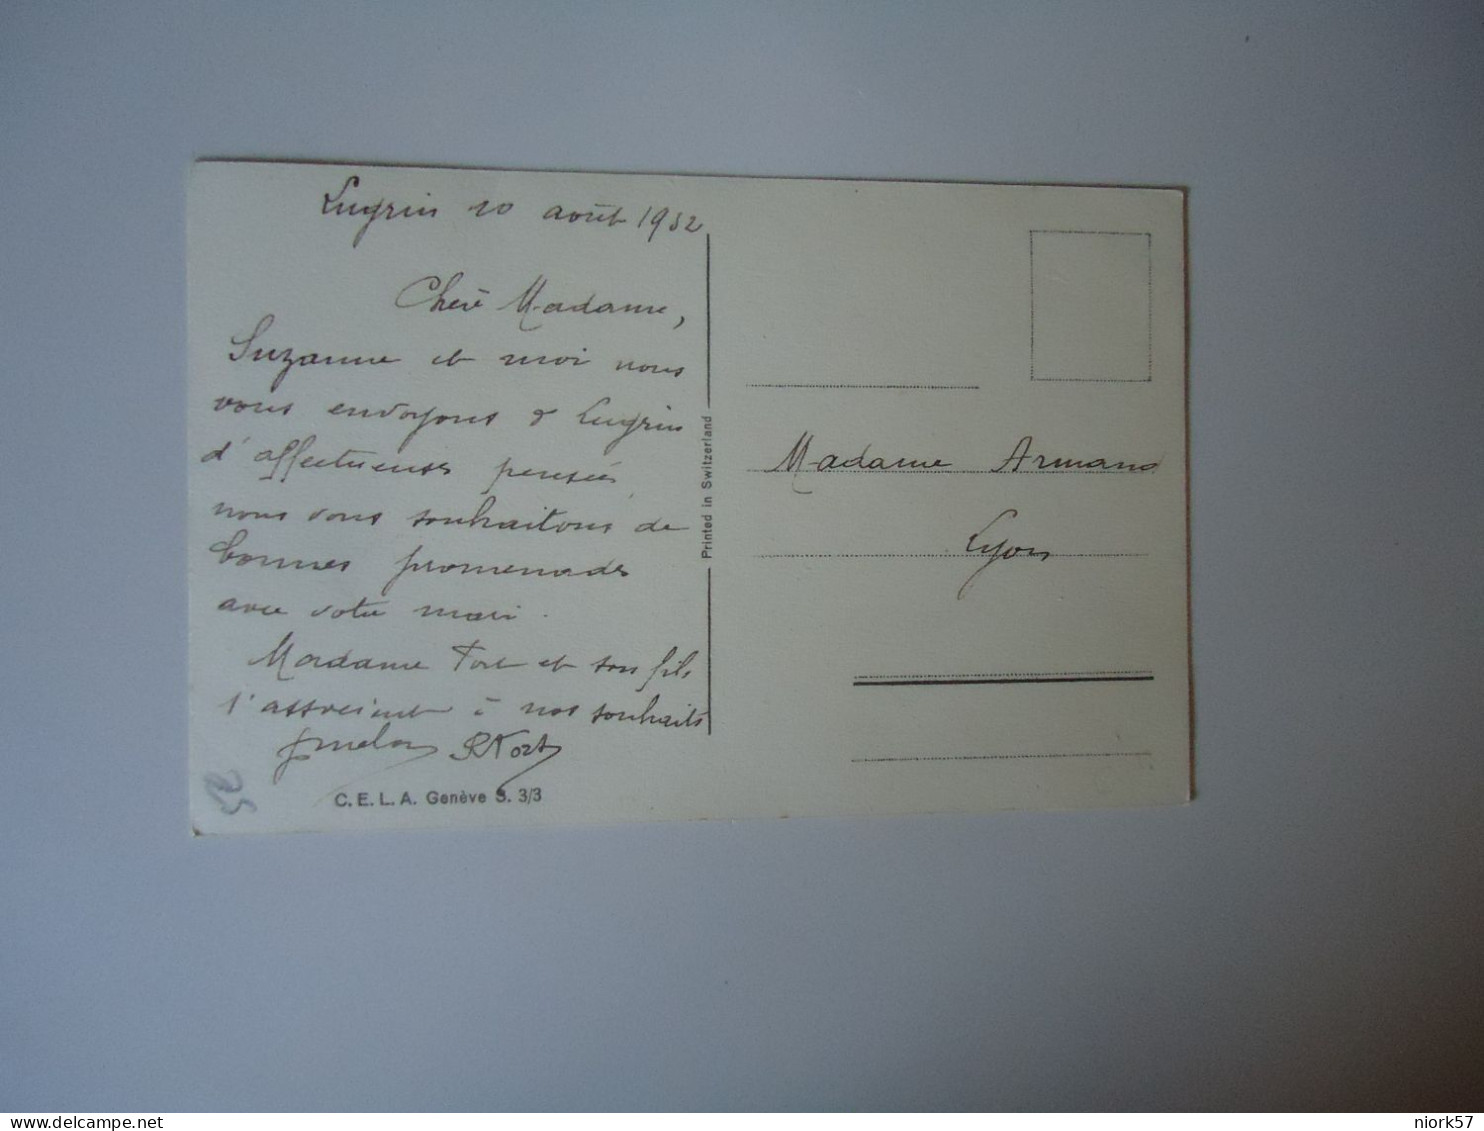 Lugrin 10 août 1932
Chère Madame,
Suzanne et moi nous
vous envoyons de Lugrin
d'affectueuses pensées
nous vous souhaitons de
bonnes promenades
avec votre mari.
Madame Fort et son fils
s'associent à nos souhaits
C. E. L. A. Genève S. 3/3
25
Printed in Switzerland
Madame Armand
Lyon
niork57